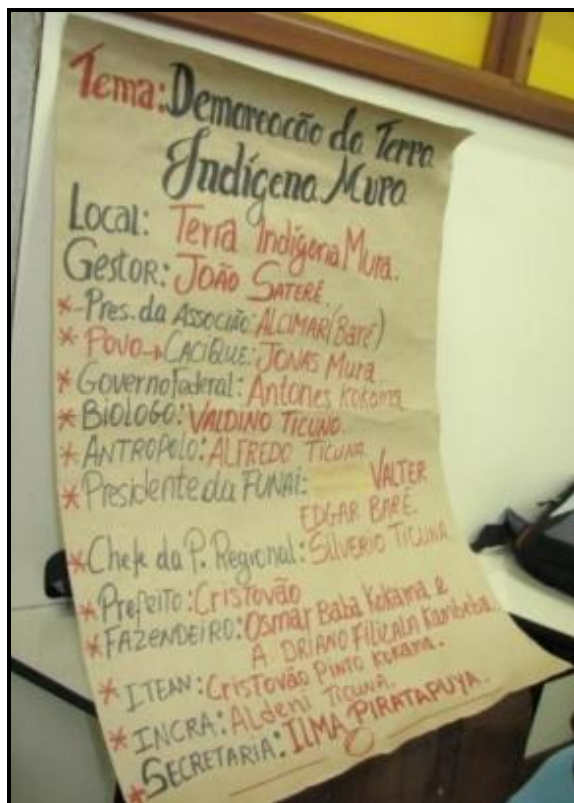 Tema: Demarcacão da Terra
Indígena Mura
Local: Terra Indígena Mura.
Gestor: JOÃO SATERÉ.
*-Pres. da Associão: ALCIMAR (Baré)
* POVO→CACIQUE: JONAS Mura
* Governo Federal: Antones Kokama
* BIOLOGO: VALDINO TICUNO.
* ANTROPOLO: ALFREDO TICUNA
* Presidente da FUNAI: VALTER
EDGAR BARÉ.
* Chefe da P. Regional: SILVERIO TICUNA
* Prefeito: CRISTOVÃO
* FAZENDEIRO: Osmar Baba Kokama &
A DRIANO Kambeba.
* ITEAN: CRISTOVÃO PINTO Kokama.
* INCRA: Aldeni TICUNA.
* SECRETARIA: ILMA PIRATAPUYA.